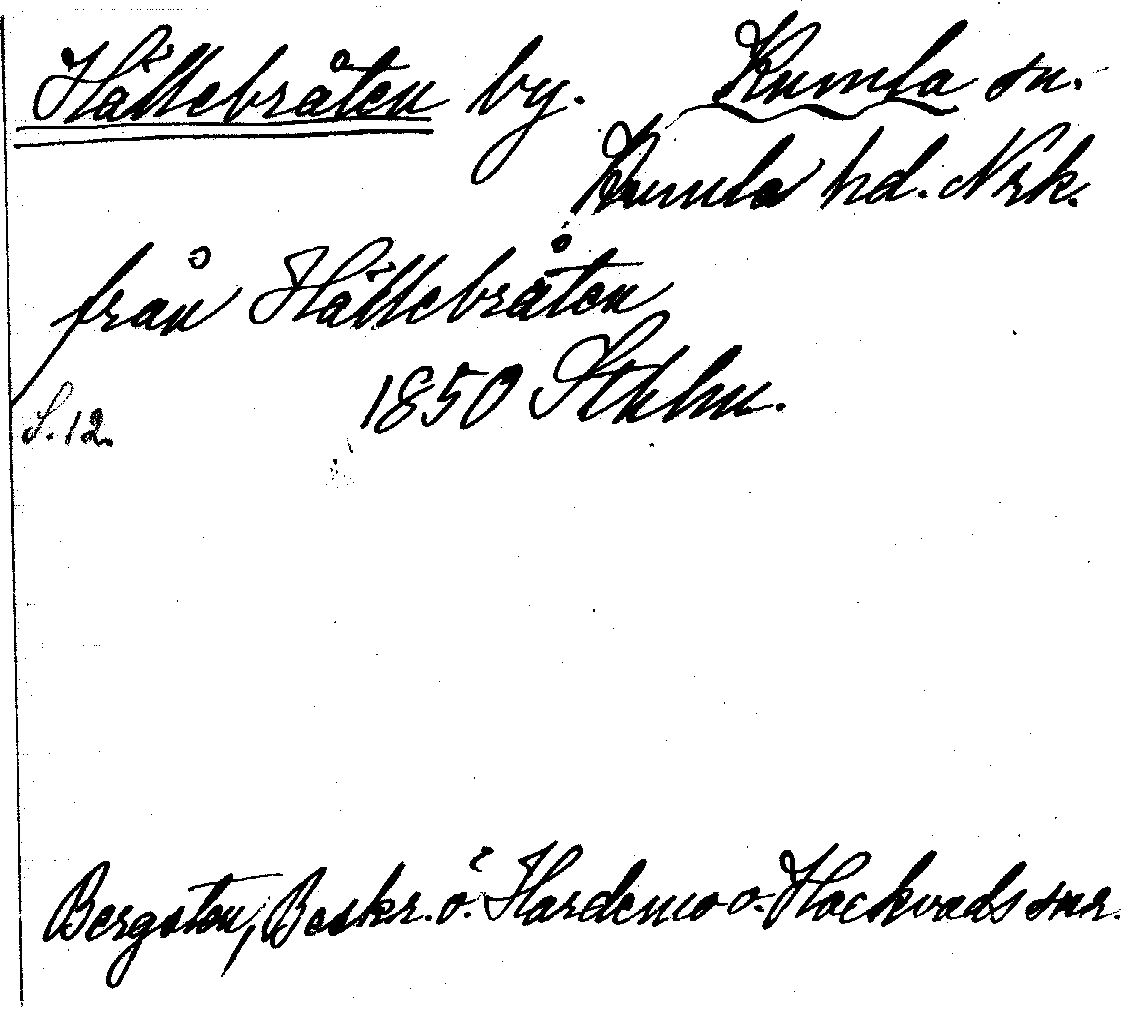 Hällebråten by. Kumla sn.
Kumla hd. Nrk.
från Hällebråten
1850 Sthlm.
S. 12.
Bergsten, Beskr. ö. Hardemo o. Hackvads snr.